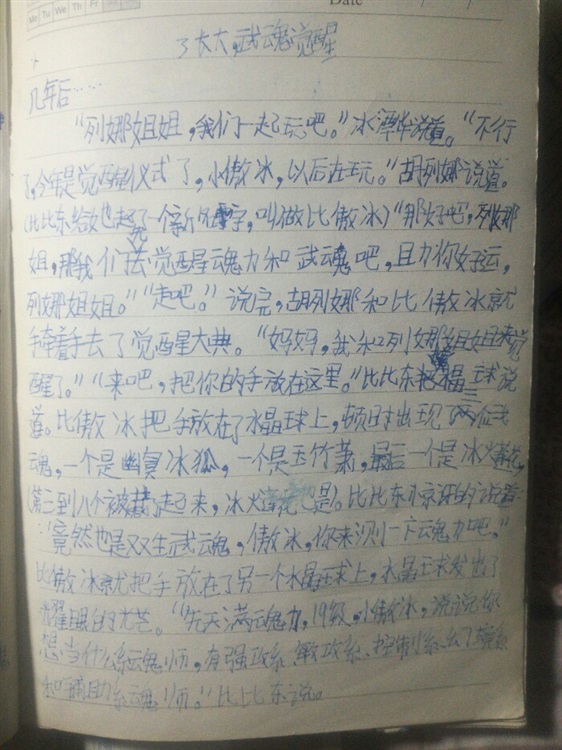 Mo Tu We Th Fr
Date
了大大,武魂觉醒
几年后……
“列娜姐姐,我们一起玩吧。”冰潭华说道。“不行
了,今年是觉醒仪式了,小傲冰,以后在玩。”胡列娜说道。
(比比东给她起了一个新名字,叫做比傲冰)“那好吧,列娜
姐,那我们去觉醒魂力和武魂吧,且力你好运,
列娜姐姐。”“走吧。”说完,胡列娜和比傲冰就
手牵着手去了觉醒星大典。“妈妈,我和列娜姐姐来觉
醒了。”“来吧,把你的手放在这里。”比比东 水晶球说
道。比傲冰把手放在了水晶球上,顿时出现了 武
魂,一个是幽冥冰狐,一个是玉竹萧,最后一个是冰火
(第三到八个被藏了起来,冰火 也是)。比比东惊讶的说道
:“竟然也是双生武魂,傲冰,你来测一下魂力吧。”
比傲冰就把手放在了另一个水晶球上,水晶球发出了
耀眼的光芒。“先天满魂力,19级。小傲冰,说说你
想当什么系魂师,有强攻系、敏攻系、控制系、
和辅助系魂师。”比比东说。